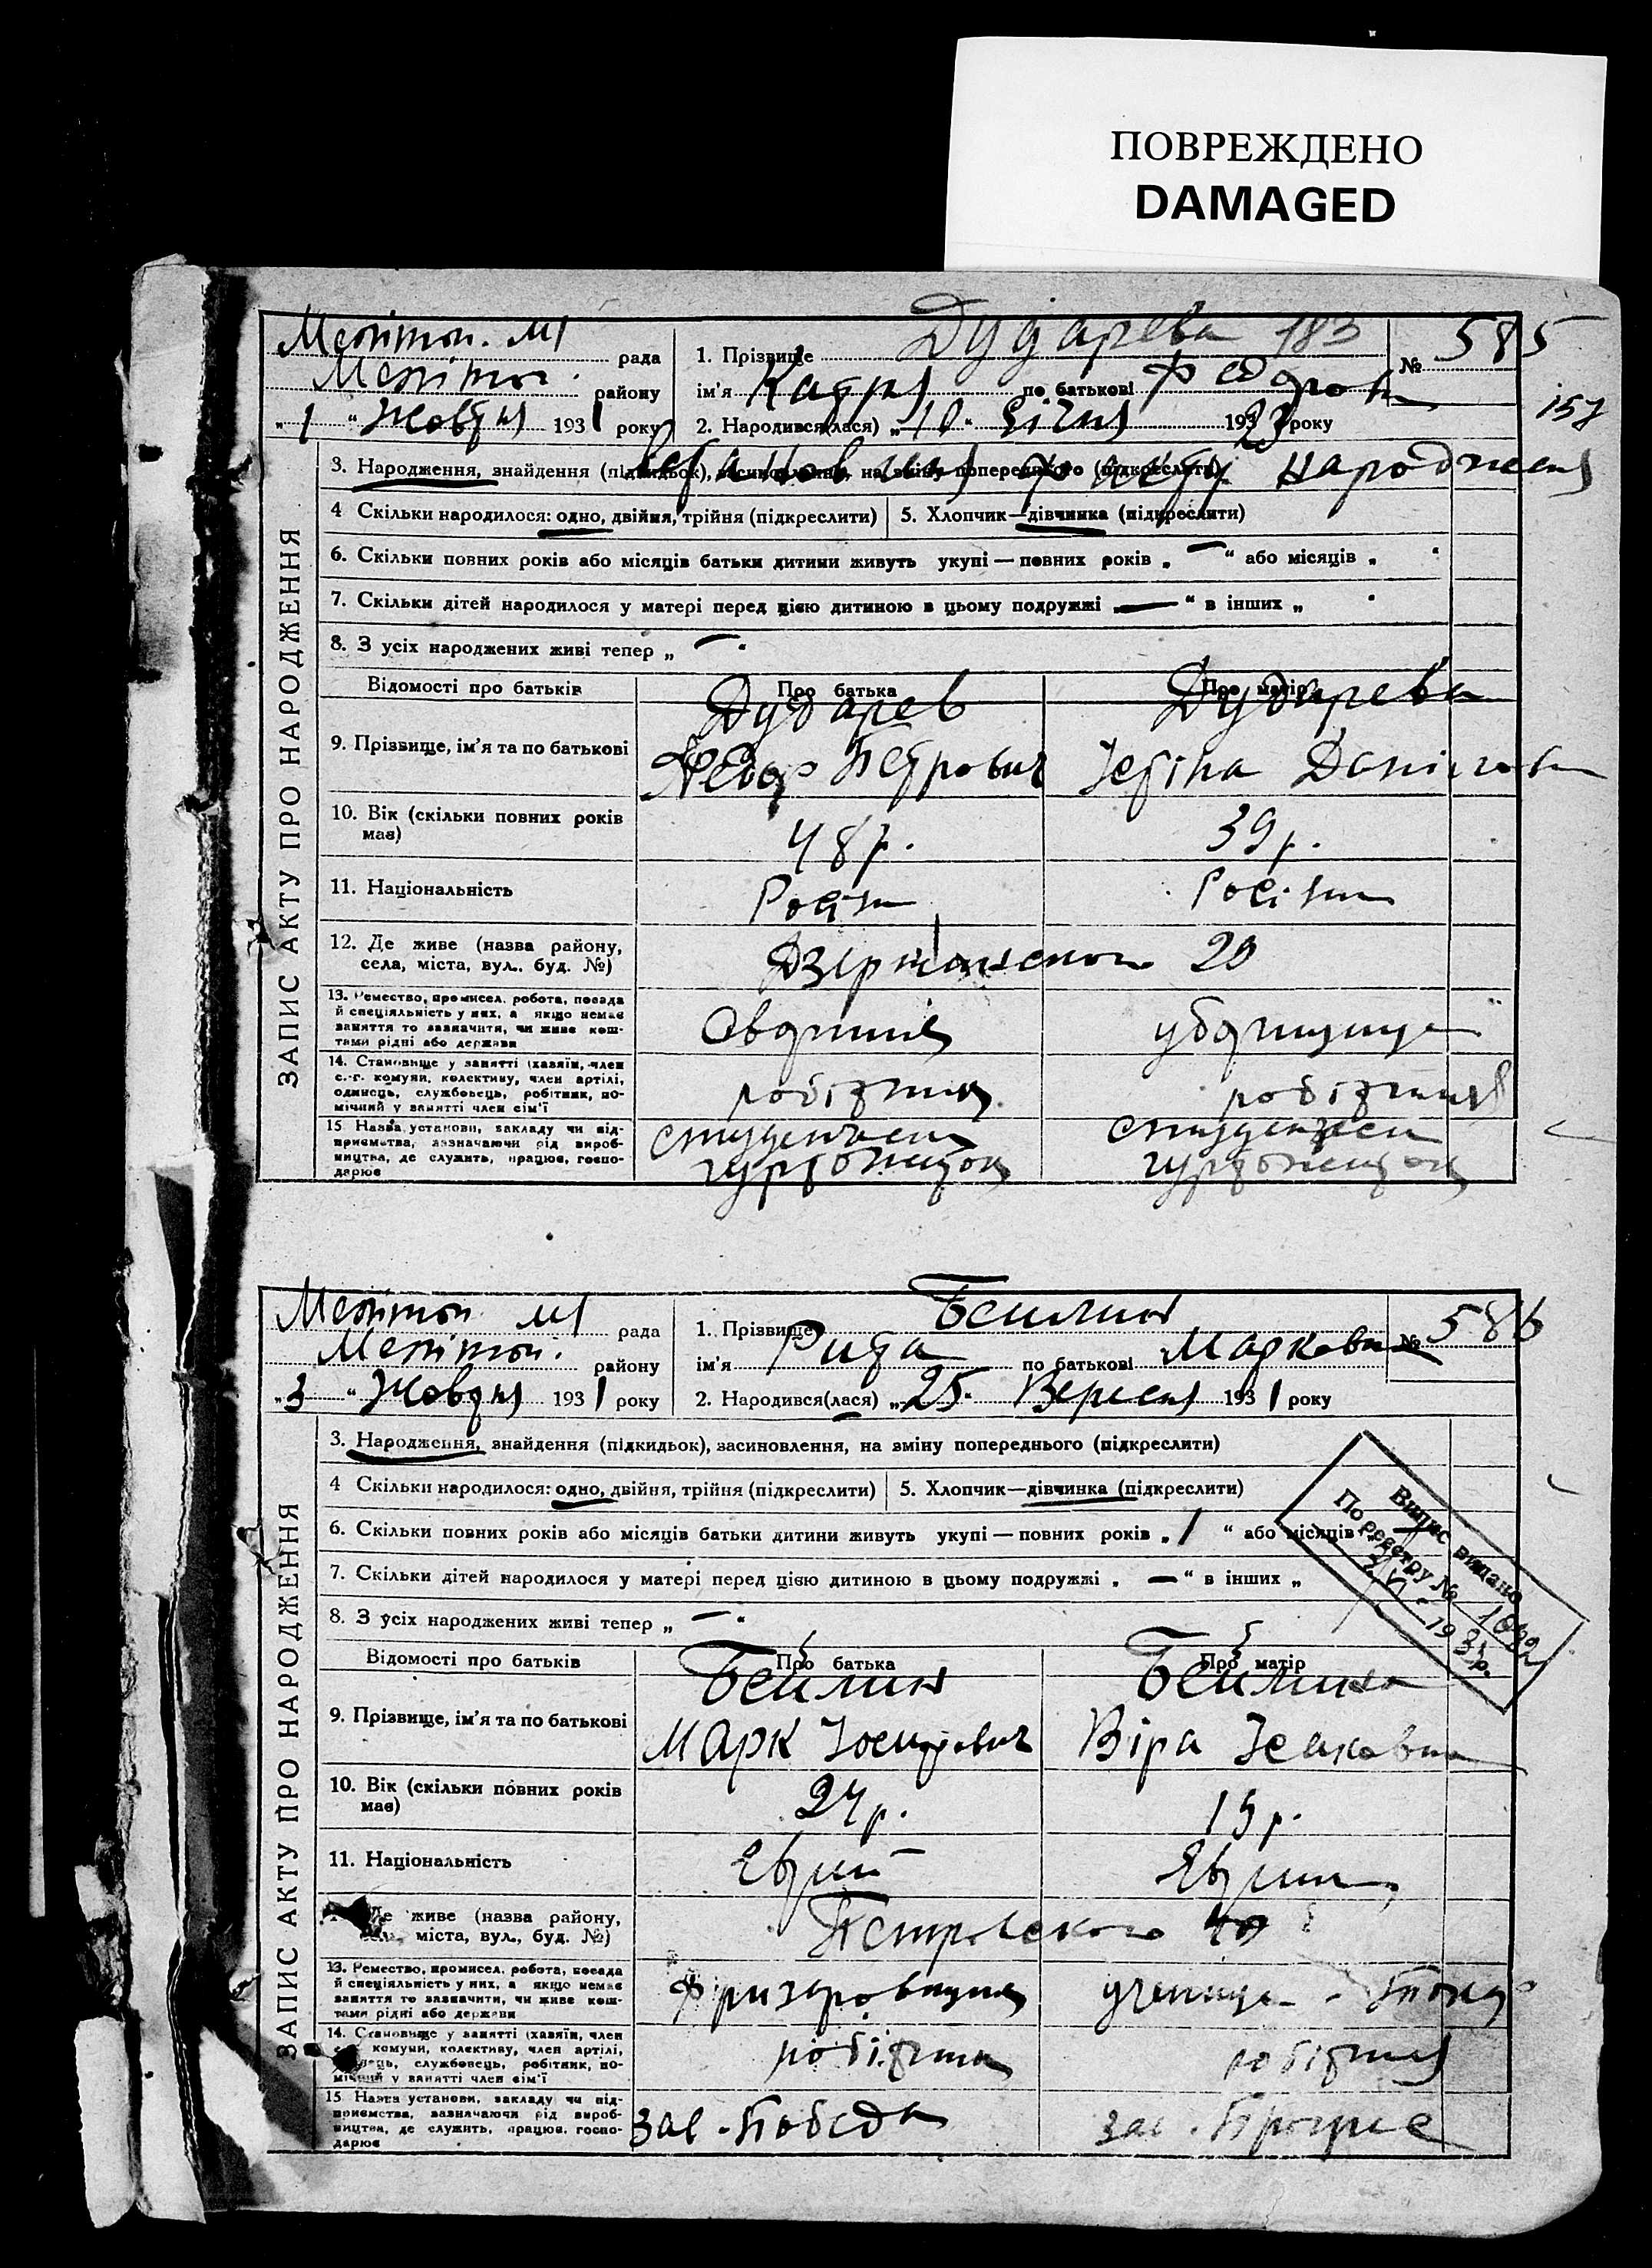 ПОВРЕЖДЕНО
DAMAGED
Меліт. рада
1. Прізвище Дударева 183
№ 585
Меліт. району
ім'я по батькові
157
„1“ Жовтня 1931 року
2. Народився(лася) „10“ Січня 1923 року
3. Народження, знайдення (підкидьок), засиновлення, на зміну попереднього (підкреслити)
народження
4 Скільки народилося: одно, двійня, трійня (підкреслити)
5. Хлопчик—дівчинка (підкреслити)
6. Скільки повних років або місяців батьки дитини живуть укупі — повних років „—“ або місяців „ “
7. Скільки дітей народилося у матері перед цією дитиною в цьому подружжі „—“ в інших „
8. З усіх народжених живі тепер „—“
ЗАПИС АКТУ ПРО НАРОДЖЕННЯ
Відомості про батьків
Про батька
Про матір
9. Прізвище, ім'я та по батькові
Дударев
Дударева
Федор Петрович
10. Вік (скільки повних років має)
48 р.
39 р.
11. Національність
12. Де живе (назва району,
села, міста, вул., буд. №)
20
13. Ремество, промисел, робота, посада
й спеціяльність у них, а якщо немає
заняття то зазначити, чи живе кош-
тами рідні або держави
14. Становище у занятті (хазяїн, член
с.-г. комуни, колективу, член артілі,
одинець, службовець, робітник, по-
мічний у занятті член сім'ї
робітник
робітниця
15 Назва установи, закладу чи під-
приємства, зазначаючи рід вироб-
ництва, де служить, працює, госпо-
дарює
гуртожиток
гуртожиток
Меліт. рада
1. Прізвище Бейлин
№ 586
Меліт. району
ім'я Рита по батькові Марковна
„3“ Жовтня 1931 року
2. Народився(лася) „25“ Вересня 1931 року
3. Народження, знайдення (підкидьок), засиновлення, на зміну попереднього (підкреслити)
4 Скільки народилося: одно, двійня, трійня (підкреслити)
5. Хлопчик—дівчинка (підкреслити)
6. Скільки повних років або місяців батьки дитини живуть укупі — повних років „1“ або місяців
7. Скільки дітей народилося у матері перед цією дитиною в цьому подружжі „—“ в інших „
8. З усіх народжених живі тепер „—“
Випис видано
По реєстру №
ЗАПИС АКТУ ПРО НАРОДЖЕННЯ
Відомості про батьків
Про батька
Про матір
9. Прізвище, ім'я та по батькові
Бейлин
Бейлина
Марк Іосифович
Віра Ісаковна
10. Вік (скільки повних років має)
24 р.
19 р.
11. Національність
Еврей
Де живе (назва району,
міста, вул., буд. №)
Петровского
13. Ремество, промисел, робота, посада
й спеціяльність у них, а якщо немає
заняття то зазначити, чи живе кош-
тами рідні або держави
учениця
14. Становище у занятті (хазяїн, член
комуни, колективу, член артілі,
службовець, робітник, по-
мічний у занятті член сім'ї
робітник
робітниця
15 Назва установи, закладу чи під-
приємства, зазначаючи рід вироб-
ництва, де служить, працює, госпо-
дарює
зав. Победа
зав.